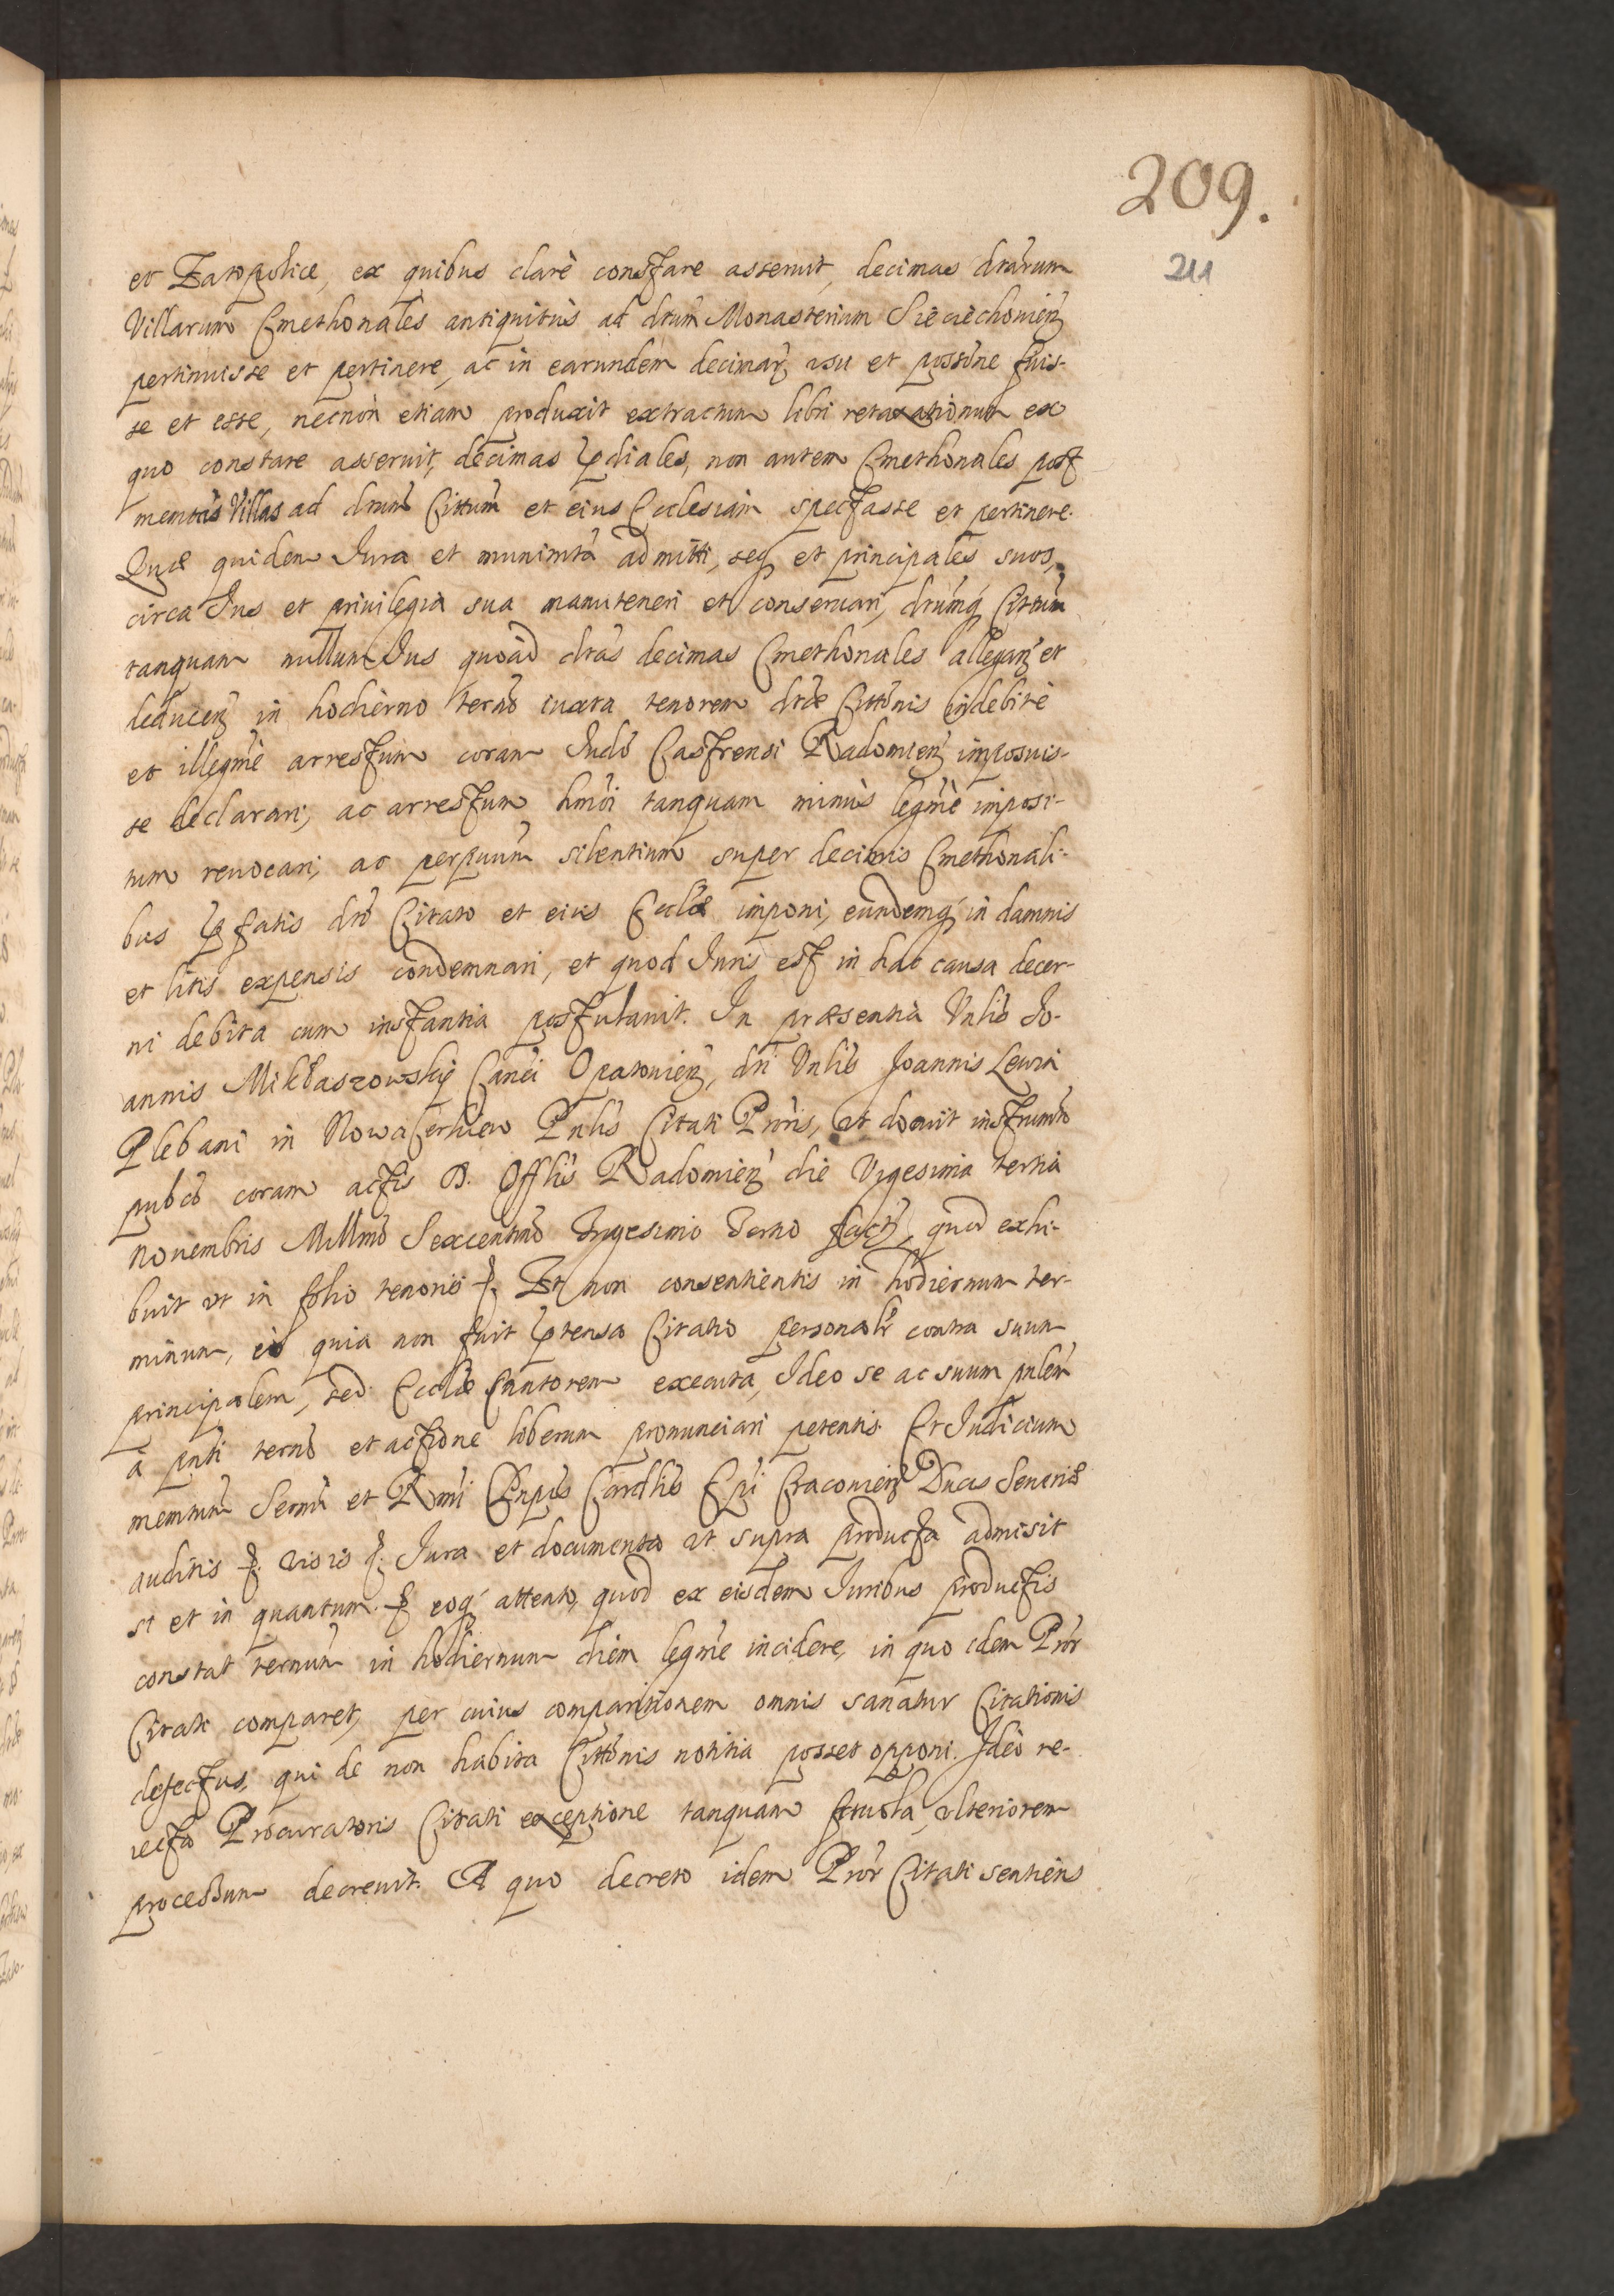 209.
211
et Zaropolice, ex quibus clarè constare asseruit, decimas dtarum
Villarum Cmethonales antiquitùs ad dtum Monasterium Sieciechouien̄
pertinuisse et pertinere, ac in earundem decimar̄ usu et possōne fuis-
se et esse, necnon etiam produxit extractum libri retaxationum ex
quo constare asseruit, decimas p̄diales, non autem Cmethonales post
mentis Villas ad dtum Cittum et eius Ecclesiam spectasse et pertinere.
Quæ quidem Iura et munimta admitti, seq et principales suos,
circa Ius et priuilegia sua manuteneri et conseruari, dtumq́ Cittum
tanquam nullum Ius quoàd dtas decimas Cmethonales allegan̄ et
deducen̄ in hodierno termo iuxta tenorem dtæ Cittonis indebitè
et illegmè arrestum coram Iudo Castrensi Radomien̄ imposuis-
se declarari, ac arrestum hmoi tanquam minùs legmè imposi-
tum reuocari, ac perpuum silentium super decimis Cmethonali-
bus p̄fatis dto Citato et eius Ecclæ imponi, eundemq́ in damnis
et litis expensis condemnari, et quod Iuris est in hac causa decer-
ni debita cum instantia postulauit. In præsentia Vnlis Io-
annis Mikłaszowskij Canci Opatouien̄, dni Vnlis Joannis Lewin
Plebani in Nowa Cerkiew Pnlis Citati Proris, ut docuit instrumto
pubco coram actis D. Offlis Radomien̄ die Vigesima tertia
Nouembris Millmo Sexcentmo Trigesimo Tertio fact, quod exhi-
buit ut in folio tenoris &. Et non consentientis in hodiernum ter-
minum, eò quia non fuit p̄tensa Citatio personalr contra suum
principalem, sed Ecclæ Cantorem executa, Ideo se ac suum pnlem
à pnti termo et actione liberum pronunciari petentis. Et Iudicium
memtum Sermi et Rmi Pnpis Cardlis Epi Cracouien̄ Ducis Seueriæ
auditis &. visis &. Iura et documenta ut supra producta admisit
si et in quantum. & eoq́ attento, quod ex eisdem Iuribus productis
constat termum in hodiernum diem legme incidere, in quo idem Pror
Citati comparet, per cuius comparitionem omnis sanatur Citationis
defectus, qui de non habita Cittonis notitia posset opponi. Ideò re-
iecta Procuratoris Citati exceptione tanquam friuola, ulteriorem
processum decreuit. A quo decreto idem Pror Citati sentiens